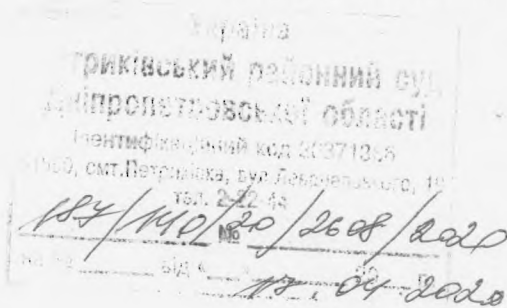 Україна
триківський районний суд
Дніпропетровської області
Ідентифікаційний код
смт.Петриківка, вул.
тел. 2-22-44
187/140/20/2608/2020
№
на № від «
17.04.2020